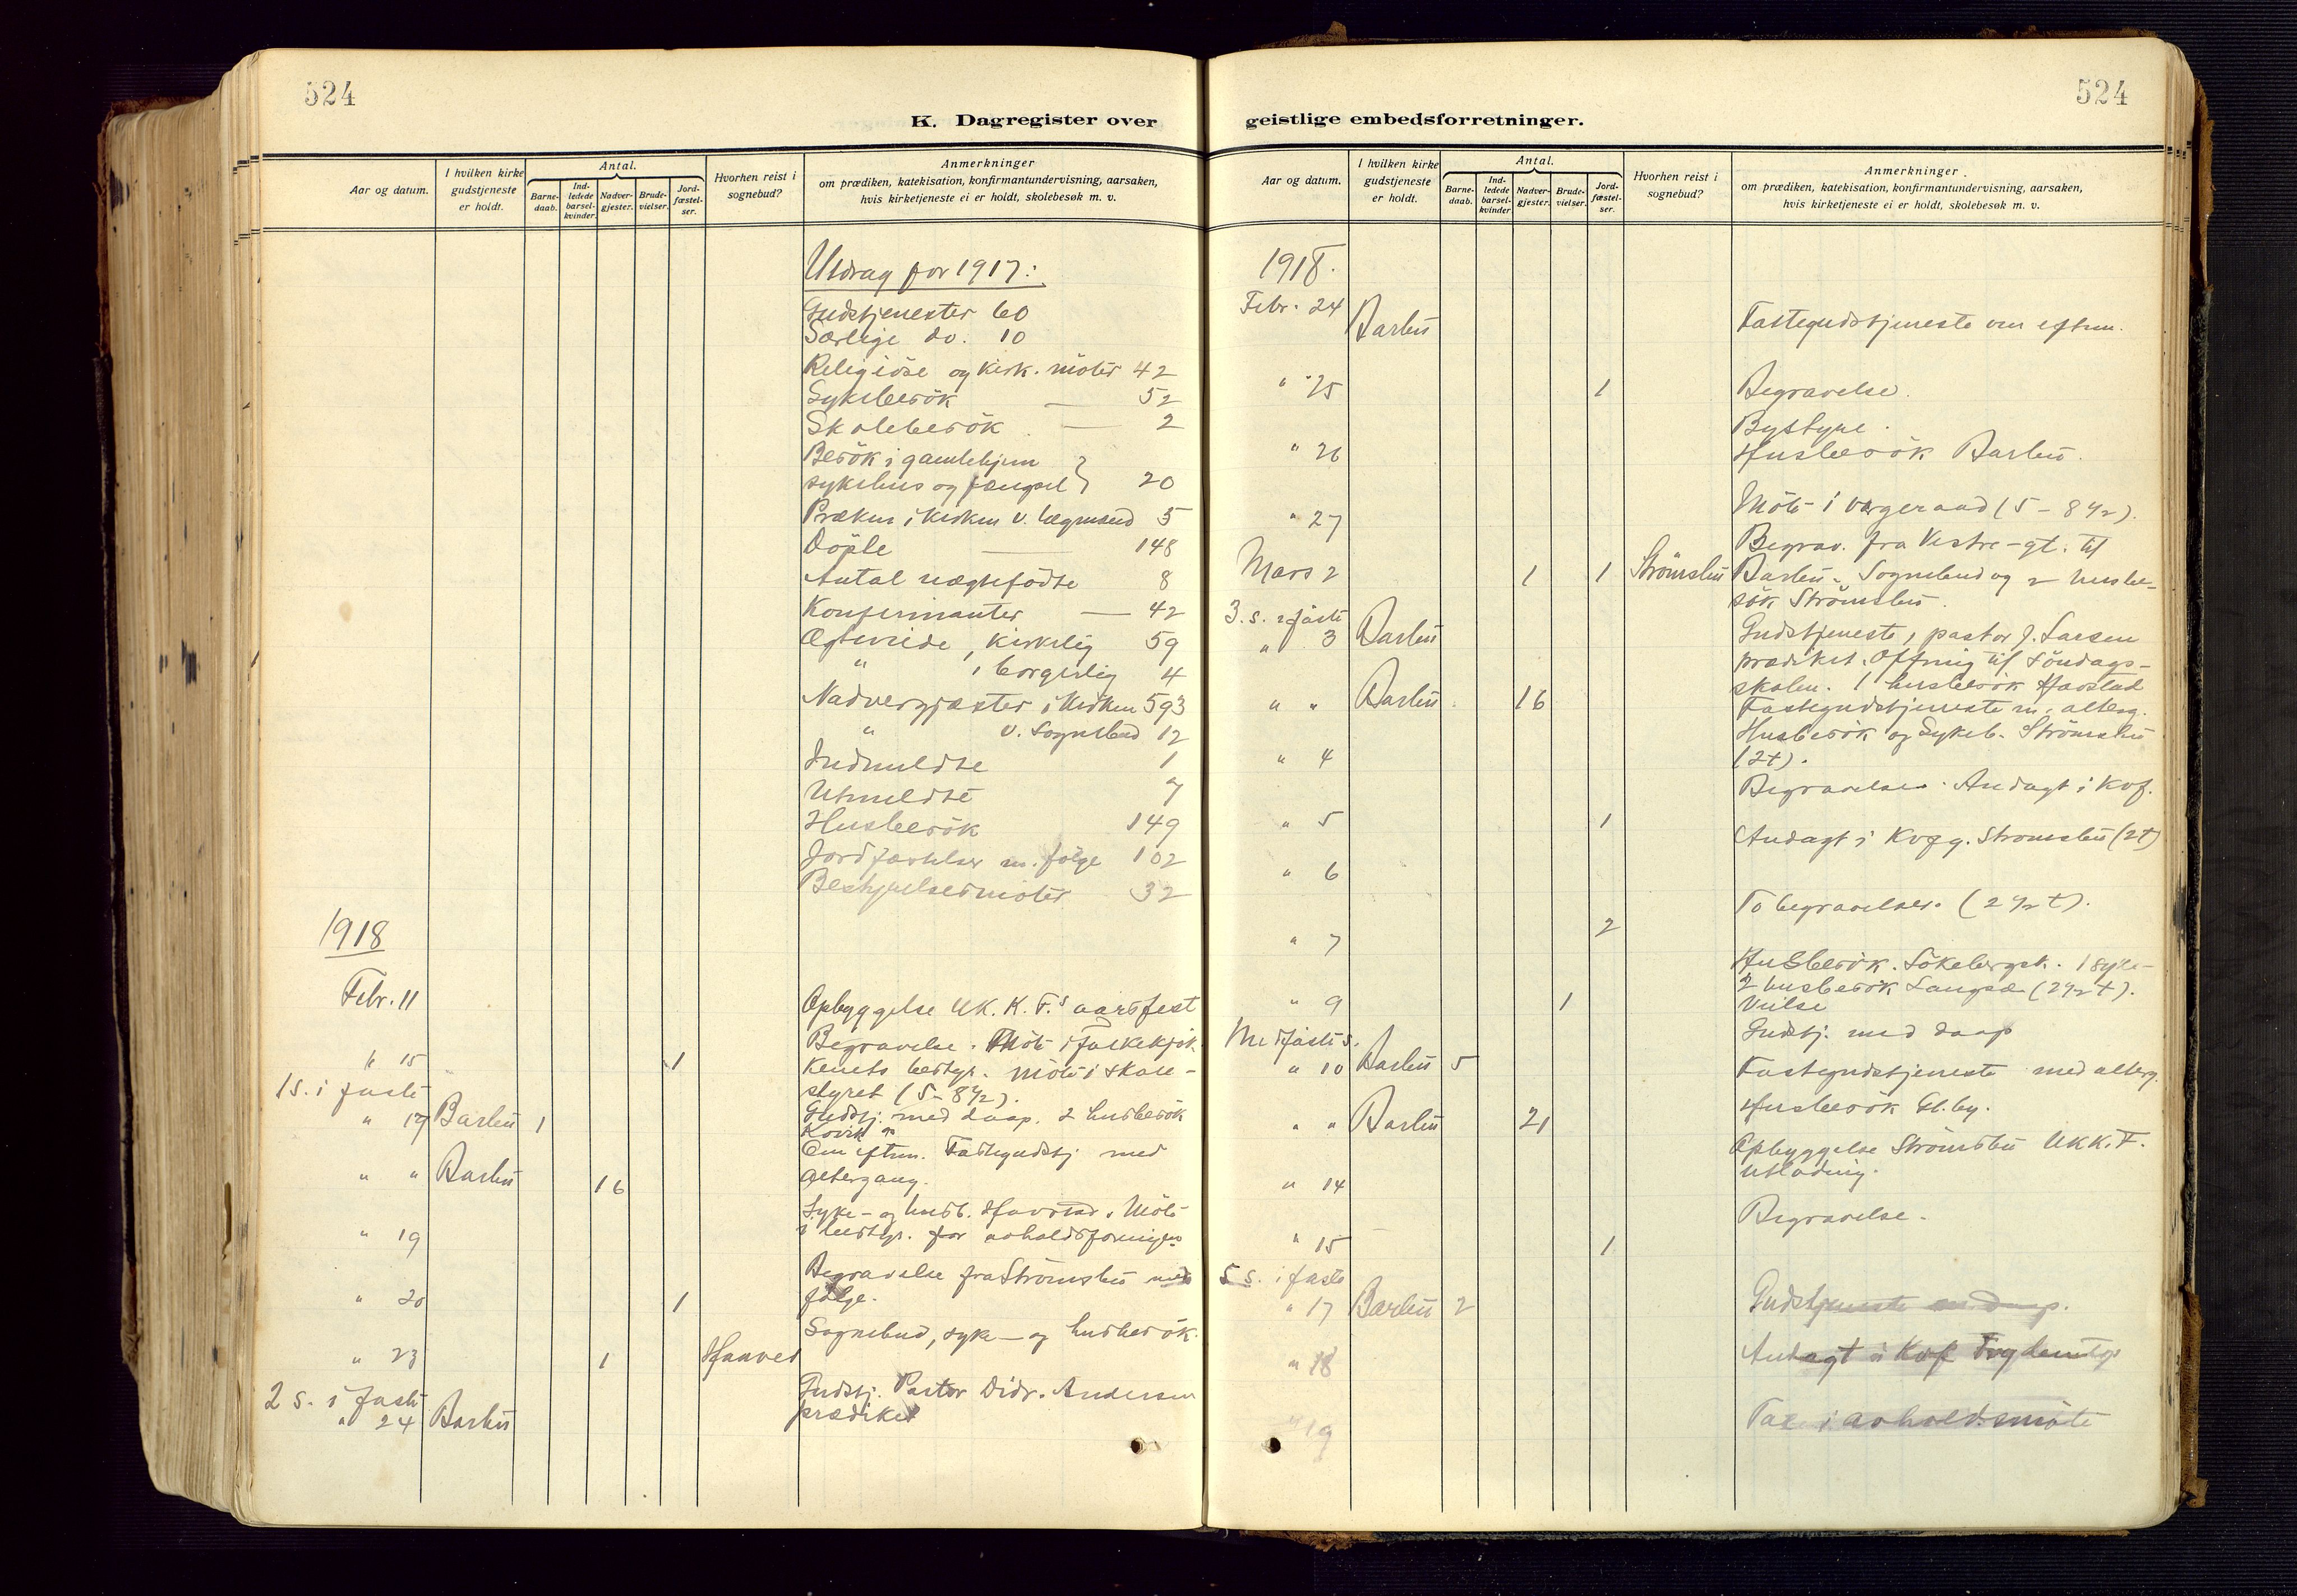 524
K. Dagregister over
Aar og datum.
I hvilken kirke gudstjeneste er holdt.
Antal.
Barne-daab.
Ind-ledede barsel-kvinder.
Nadver-gjester.
Brude-vielser.
Jord-fæstel-ser.
Hvorhen reist i sognebud?
Anmerkninger
om prædiken, katekisation, konfirmantundervisning, aarsaken,
hvis kirketjeneste ei er holdt, skolebesøk m. v.
Utdrag for 1917:
Gudstjenester 60
Særlige do. 10
Religiöse og kirk. möter 42
Sykebesök — 52
Skolebesök — 2
Besök i gamlehjem
sykehus og fængsel } 20
Præken i kirken v. lægmænd 5
Döpte — 148
Antal uegtefödte 8
Konfirmanter — 42
Egteviede, kirkelig 59
" , borgerlig 4
Nadvergjæster i kirken 593
" v. sognebud 12
Indmeldte 1
Utmeldte 7
Husbesök 149
Jordfæstelser m. fölge 102
Bestyrelsesmöter 32
1918
Febr. 11 Opbyggelse U.K.K.F.s aarsfest
" 15 1 Begravelse. Möte i
bestyr. Möte i skole-
styret (5-8½).
1 s. i faste
" 17 Barbu 1 Gudstj. med daap. 2 husbesök
" " Barbu 16 Om eftm. Fastegudstj. med
altergang.
" 19 Syke- og husb. Havstad. Möte
i bestyr. for avholdsforeningen
" 20 1 Begravelse fra Strömsbu med
fölge.
" 23 1 Sognebud, syke- og husbesök.
2 s. i faste
" 24 Barbu Gudstj. Pastor Didr. Andersen
prædiket
524
geistlige embedsforretninger.
Aar og datum.
I hvilken kirke gudstjeneste er holdt.
Antal.
Barne-daab.
Ind-ledede barsel-kvinder.
Nadver-gjester.
Brude-vielser.
Jord-fæstel-ser.
Hvorhen reist i sognebud?
Anmerkninger
om prædiken, katekisation, konfirmantundervisning, aarsaken,
hvis kirketjeneste ei er holdt, skolebesøk m. v.
1918.
Febr. 24 Barbu Fastegudstjeneste om eftm.
" 25 1 Begravelse.
Bystyre.
" 26 Husbesök Barbu.
" 27 Möte i vergeraad (5-8½).
Begrav. fra Vestre-gt. til
Mars 2 1 1 Strömsbu Barbu. Sognebud og 2 husbe-
sök Strömsbu.
3. s. i faste
" 3 Barbu Gudstjeneste, pastor J. Larsen
prædiket. Offring til söndags-
skolen. 1 husbesök Havstad
" " Barbu 16 Fastegudstjeneste m. alterg.
" 4 Husbesök og Sykeb. Strömsbu
(2t).
" 5 1 Begravelse. Andagt i Kvf.
" 6 Andagt i Kvfg. Strömsbu (2t)
" 7 2 To begravelser. (2½ t).
Husbesök. 1 syke-
2 husbesök Langsæ (2½ t).
" 9 1 Vielse
Midfaste s.
" 10 Barbu 5 Gudstj. med daap
" " Barbu 21 Fastegudstjeneste med alterg.
Husbesök
" 14 Opbyggelse Strömsbu U.K.K.F.
utlodning.
" 15 1 Begravelse.
5 s. i faste
" 17 Barbu 2 Gudstjeneste m daap.
" 18 Andagt i Kvf
" 19 Tale i avholdsmöte